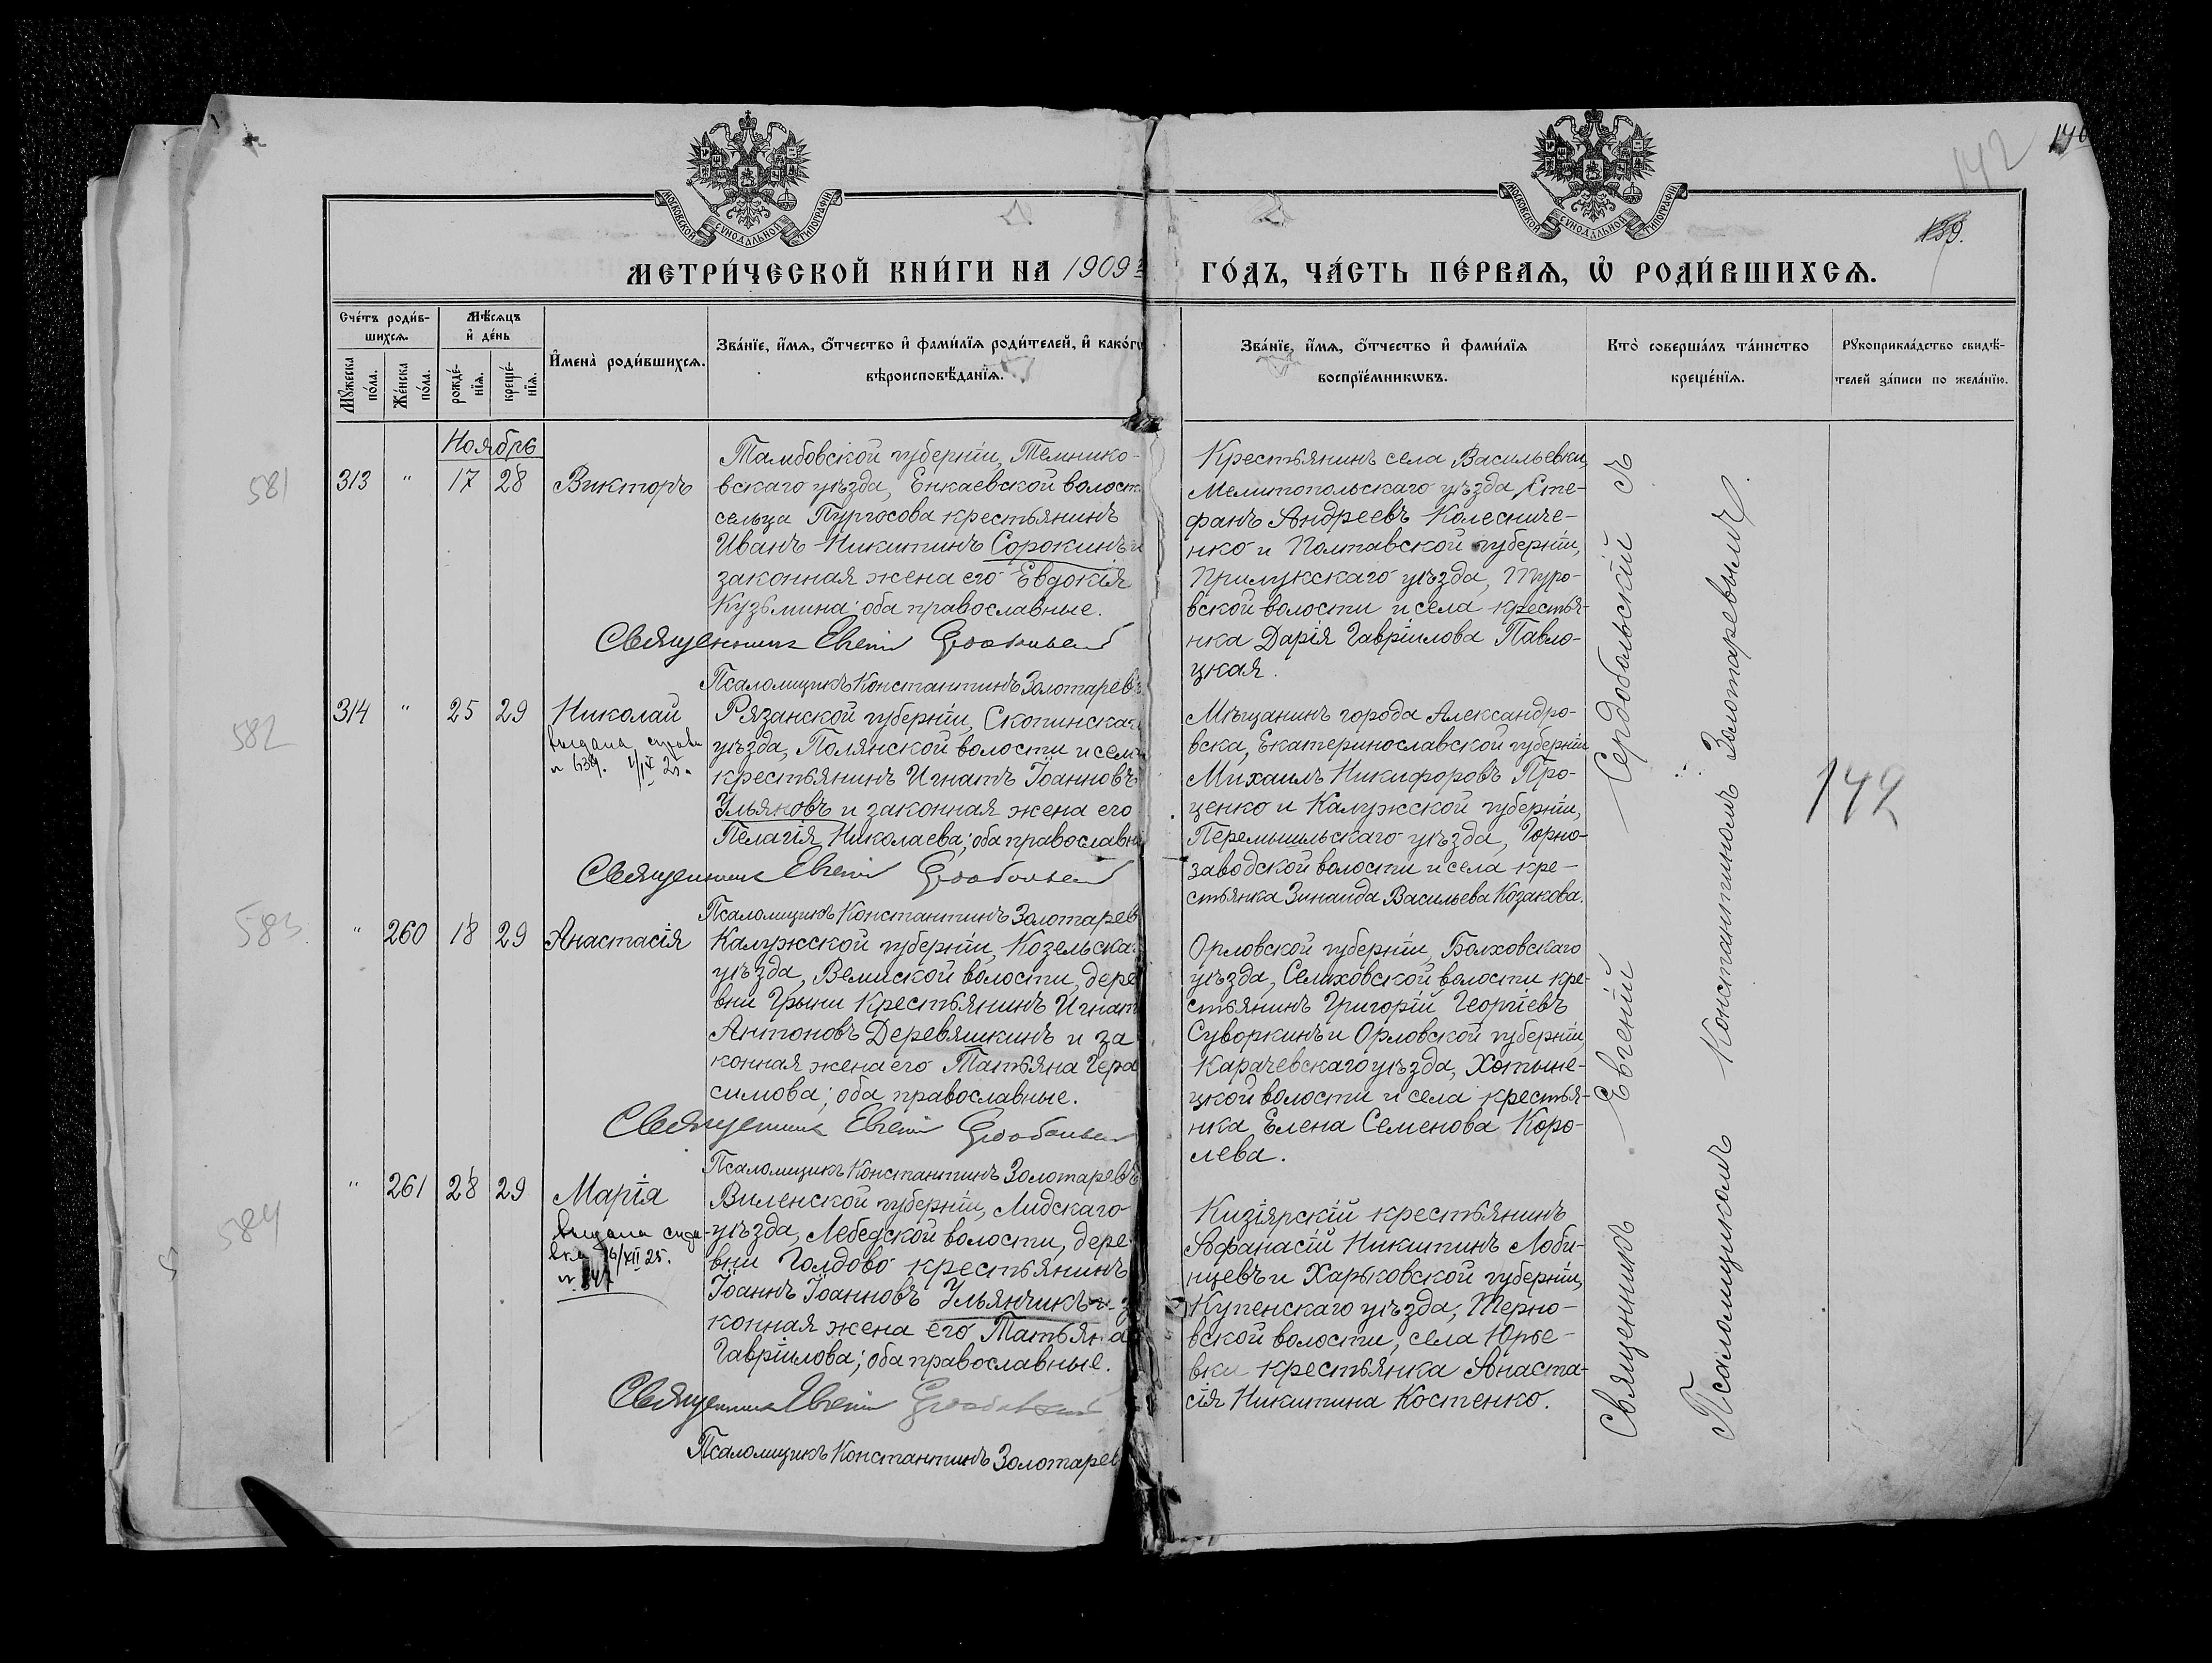 142
139.
МОСКОВСКОЙ СѴНОДАЛЬНОЙ ТИПОГРАФІИ
МОСКОВСКОЙ СѴНОДАЛЬНОЙ ТИПОГРАФІИ
МЕТРИ́ЧЕСКОЙ КНИ́ГИ НА 1909 ГО́ДЪ, ЧА́СТЬ ПЕ́РВАѦ, Ѡ҆ РОДИ́ВШИХСѦ.
Сче́тъ роди́в-
шихсѧ.
Мꙋ́жеска по́ла.
Же́нска по́ла.
Мѣ́сѧцъ
и҆ де́нь
рожде́-
нїѧ.
креще́-
нїѧ.
И҆мена̀ роди́вшихсѧ.
Зва́нїе, и҆́мѧ, ѻ҆́тчество и҆ фами́лїѧ роди́телей, и҆ како́гѡ
вѣроисповѣ́данїѧ.
Зва́нїе, и҆́мѧ, ѻ҆́тчество и҆ фами́лїѧ
воспрїе́мникѡвъ.
Кто̀ соверша́лъ та́инство
креще́нїѧ.
Рꙋкоприкла́дство свидѣ́-
телей за́писи по жела́нїю.
Ноябрь
581
313 " 17 28 Викторъ
Тамбовской губерніи, Темнико-
вскаго уѣзда, Енкаевской волост
сельца Пургосова крестьянинъ
Иванъ Никитинъ Сорокинъ и
законная жена его Евдокія
Кузьмина; оба православные.
Священникъ Евгеній
Псаломщикъ Константинъ Золотаревъ
Крестьянинъ села Васильевки,
Мелитопольскаго уѣзда, Сте-
фанъ Андреевъ Колесниче-
нко и Полтавской губерніи,
Прилукскаго уѣзда, Туро-
вской волости и села крестья-
нка Дарія Гавріилова Павло-
цкая.
582
314 " 25 29 Николай
выдана справк
Рязанской губерніи, Скопинскаг
уѣзда, Полянской волости и сел
крестьянинъ Игнатъ Іоанновъ
Ульяковъ и законная жена его
Пелагія Николаева; оба православн
Священникъ Евгеній
Псаломщикъ Константинъ Золотарев
Мѣщанинъ города Александро-
вска, Екатеринославской губерніи
Михаилъ Никифоровъ Про-
ценко и Калужской губерніи,
Перемышльскаго уѣзда, Горно-
заводской волости и села кре-
стьянка Зинаида Васильева Козакова.
583
" 260 18 29 Анастасія
Калужской губерніи, Козельска
уѣзда, Велиской волости, дере
вни Грыни крестьянинъ Игнат
Антоновъ Деревяшкинъ и за
конная жена его Татьяна Гера
симова; оба православные.
Священникъ Евгеній
Псаломщикъ Константинъ Золотаревъ
Орловской губерніи, Болховскаго
уѣзда, Селиховской волости кре-
стьянинъ Григорій Георгіевъ
Суворкинъ и Орловской губерніи,
Карачевскаго уѣзда, Хотыне-
цкой волости и села крестья-
нка Елена Семенова Коро-
лева.
584
" 261 28 29 Марія
выдана спра-
вка 16/XII 25.
Виленской губерніи, Лидскаго
уѣзда, Лебедской волости, дере
вни Голдово крестьянинъ
Іоаннъ Іоанновъ Ульянчикъ и з
конная жена его Татьяна
Гавріилова; оба православные.
Священникъ Евгеній
Псаломщикъ Константинъ Золотарев
Кизіярскій крестьянинъ
Афанасій Никитинъ Лоби-
нцевъ и Харьковской губерніи,
Купенскаго уѣзда, Терно-
вской волости, села Юрье-
вки крестьянка Анаста-
сія Никитина Костенко.
Священникъ Евгеній Сердобольскій съ
Псаломщикомъ Константиномъ Золотаревымъ.
142